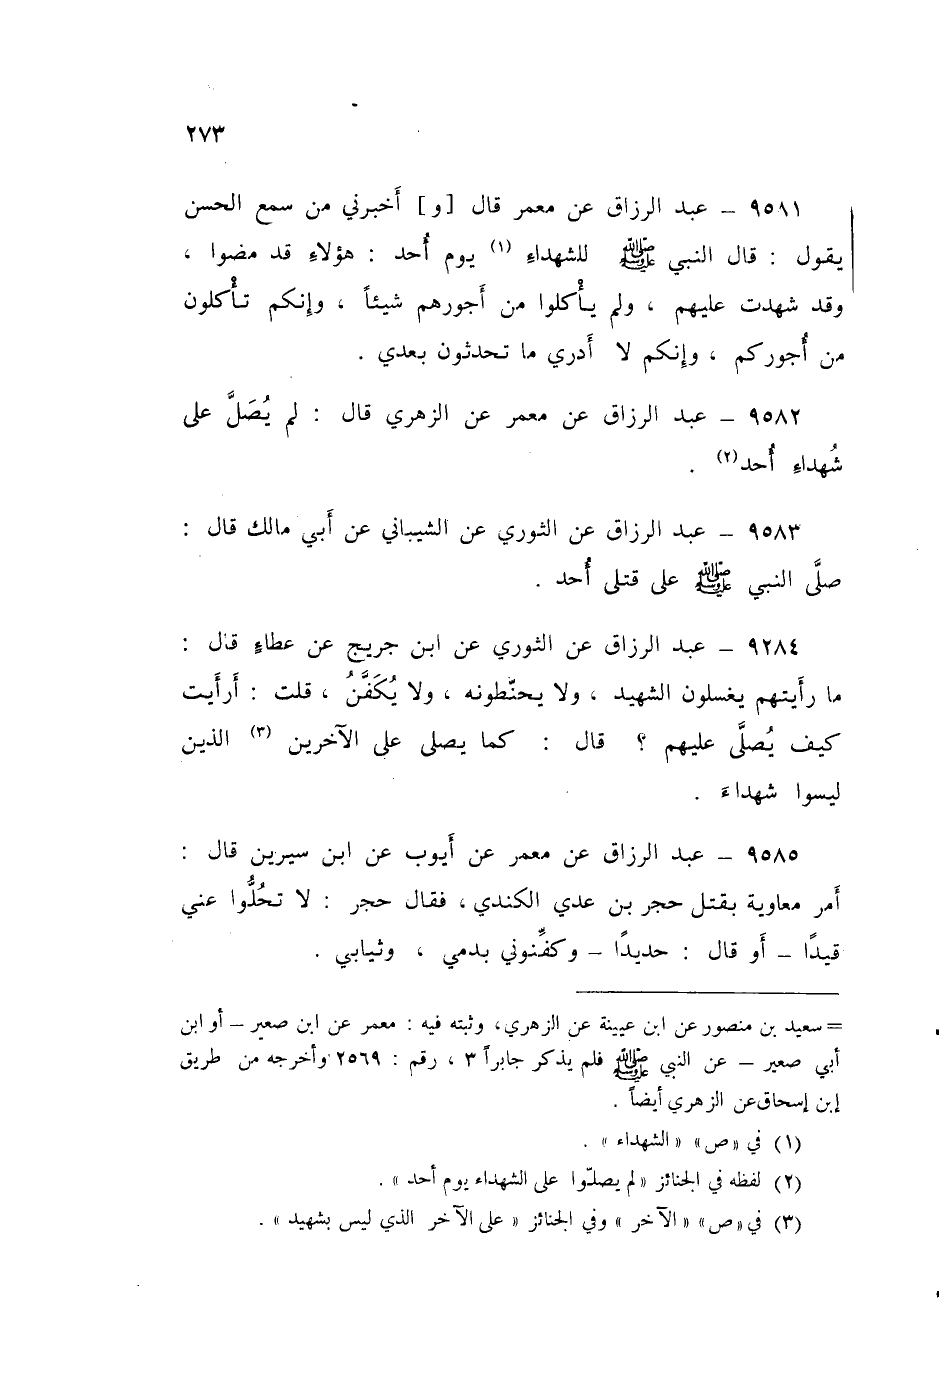 ٢٧٣
٩٥٨١ – عبد الرزاق عن معمر قال [و] أَخبرني من سمع الحسن
يقول : قال النبي ﷺ للشهداءِ (١) يوم أُحد : هؤلاءِ قد مضوا ،
وقد شهدت عليهم ، ولم يأْكلوا من أَجورهم شيئاً ، وإنكم تأْكلون
من أُجوركم ، وإنكم لا أَدري ما تحدثون بعدي .
٩٥٨٢ – عبد الرزاق عن معمر عن الزهري قال : لم يُصَلَّ على
شُهداءِ أُحد(٢) .
٩٥٨٣ – عبد الرزاق عن الثوري عن الشيباني عن أَبي مالك قال :
صلَّى النبي ﷺ على قتلى أُحد .
٩٢٨٤ – عبد الرزاق عن الثوري عن ابن جريج عن عطاءٍ قال :
ما رأَيتهم يغسلون الشهيد ، ولا يحنّطونه ، ولا يُكَفَّنُ ، قلت : أَرأَيت
كيف يُصلَّى عليهم ؟ قال : كما يصلى على الآخرين (٣) الذين
ليسوا شهداءَ .
٩٥٨٥ – عبد الرزاق عن معمر عن أَيوب عن ابن سيرين قال :
أَمر معاوية بقتل حجر بن عدي الكندي ، فقال حجر : لا تحُلُّوا عني
قيدًا – أَو قال : حديدًا – وكفِّنوني بدمي ، وثيابي .
= سعيد بن منصور عن ابن عيينة عن الزهري، وثبته فيه : معمر عن ابن صعير – أو ابن
أبي صعير – عن النبي ﷺ فلم يذكر جابراً ٣ ، رقم : ٢٥٦٩ وأخرجه من طريق
إبن إسحاق عن الزهري أيضاً .
(١) في «ص» « الشهداء » .
(٢) لفظه في الجنائز «لم يصلّوا على الشهداء يوم أحد» .
(٣) في «ص» « الآخر » وفي الجنائز « على الآخر الذي ليس بشهيد » .